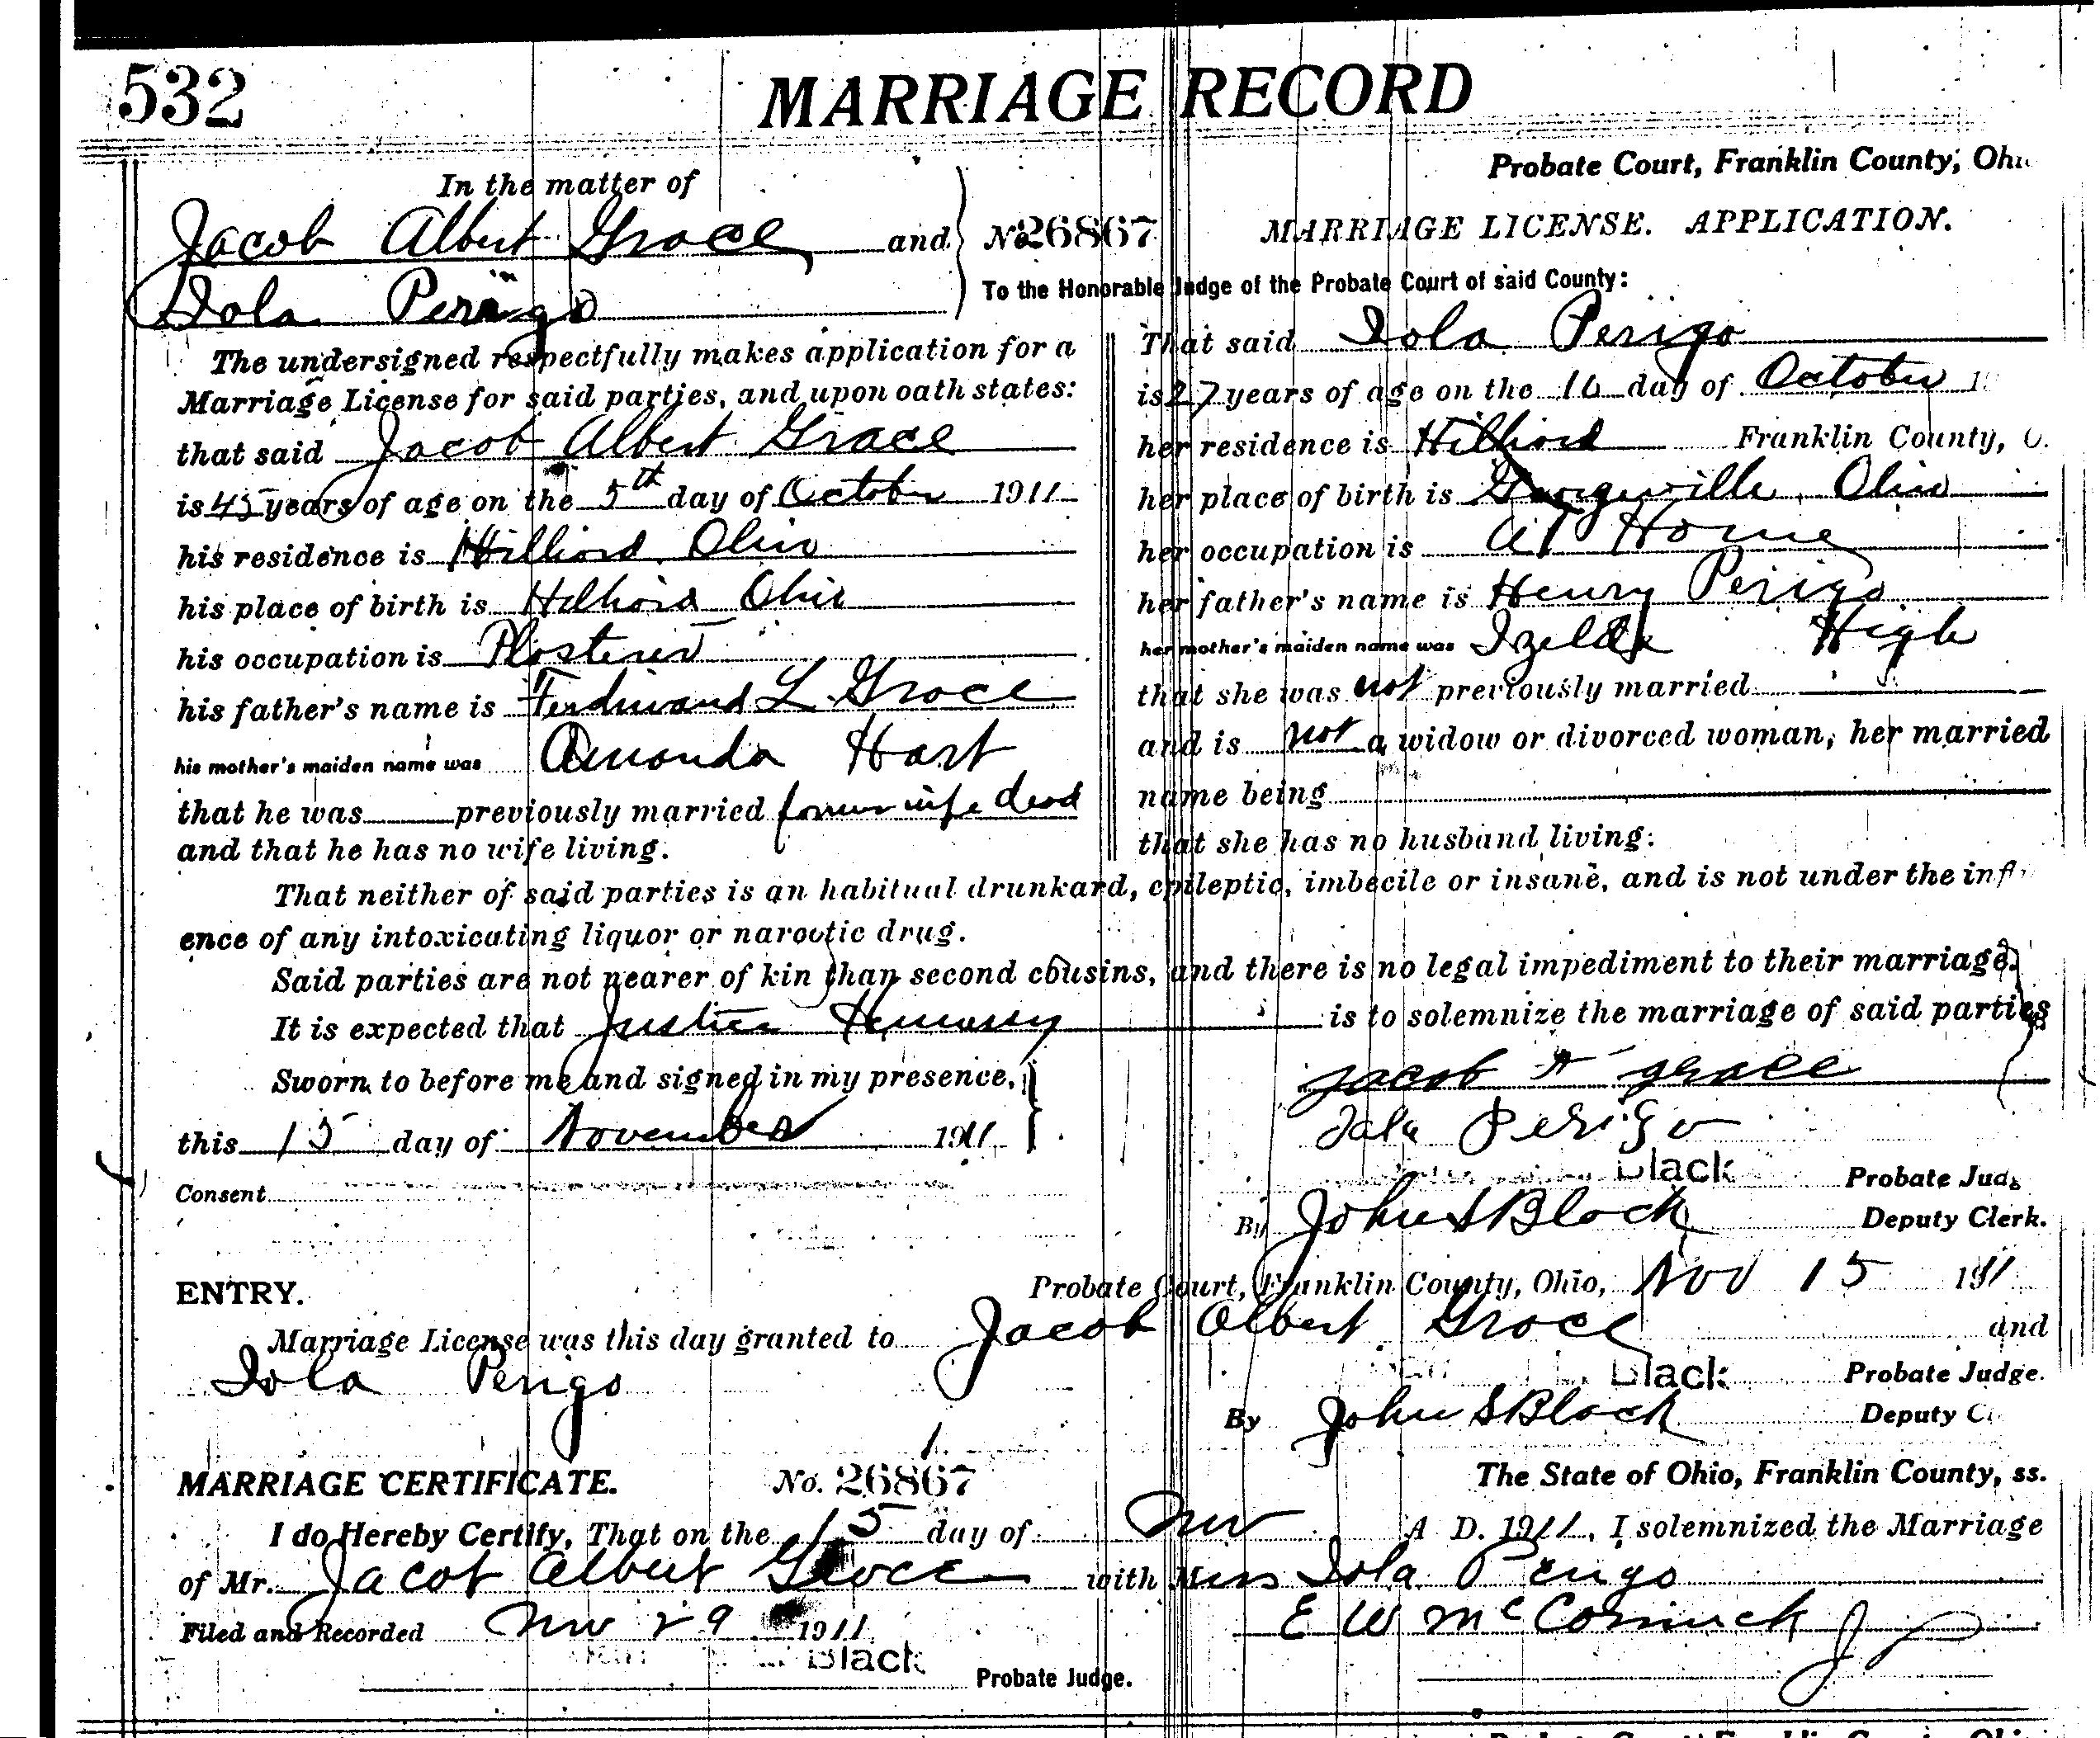 532
MARRIAGE RECORD
Probate Court, Franklin County, Ohi
In the matter of
Jacob Albert Grace and
Iola Perigo
No 26867
MARRIAGE LICENSE. APPLICATION.
To the Honorable Judge of the Probate Court of said County:
The undersigned respectfully makes application for a
Marriage License for said parties, and upon oath states:
that said Jacob Albert Grace
is 45 years of age on the 5th day of October 1911
his residence is Hilliard Ohio
his place of birth is Hilliard Ohio
his occupation is Plasterer
his father's name is Ferdinand L Grace
his mother's maiden name was Amanda Hart
that he was previously married former wife dead
and that he has no wife living.
That said Iola Perigo
is 27 years of age on the 16 day of October 1
her residence is Hilliard Franklin County, O.
her place of birth is Georgesville, Ohio
her occupation is At Home
her father's name is Henry Perigo
her mother's maiden name was Izelda High
that she was not previously married
and is not a widow or divorced woman; her married
name being
that she has no husband living:
That neither of said parties is an habitual drunkard, epileptic, imbecile or insane, and is not under the infl
ence of any intoxicating liquor or narcotic drug.
Said parties are not nearer of kin than second cousins, and there is no legal impediment to their marriage.
It is expected that Justice Hennessy is to solemnize the marriage of said parties
Sworn to before me and signed in my presence,
this 15 day of November 1911
Consent
Jacob A grace
Iola Perigo
Black Probate Judg
By John S Black Deputy Clerk.
ENTRY.
Probate Court, Franklin County, Ohio, Nov 15 1911
Marriage License was this day granted to Jacob Albert Grace and
Iola Perigo
Black Probate Judge.
By John S Black Deputy Cl
MARRIAGE CERTIFICATE. No. 26867
The State of Ohio, Franklin County, ss.
I do Hereby Certify, That on the 15 day of Nov A D. 1911, I solemnized the Marriage
of Mr. Jacob Albert Grace with Miss Iola Perigo
Filed and Recorded Nov 29 1911
E W McCormick J
Black Probate Judge.